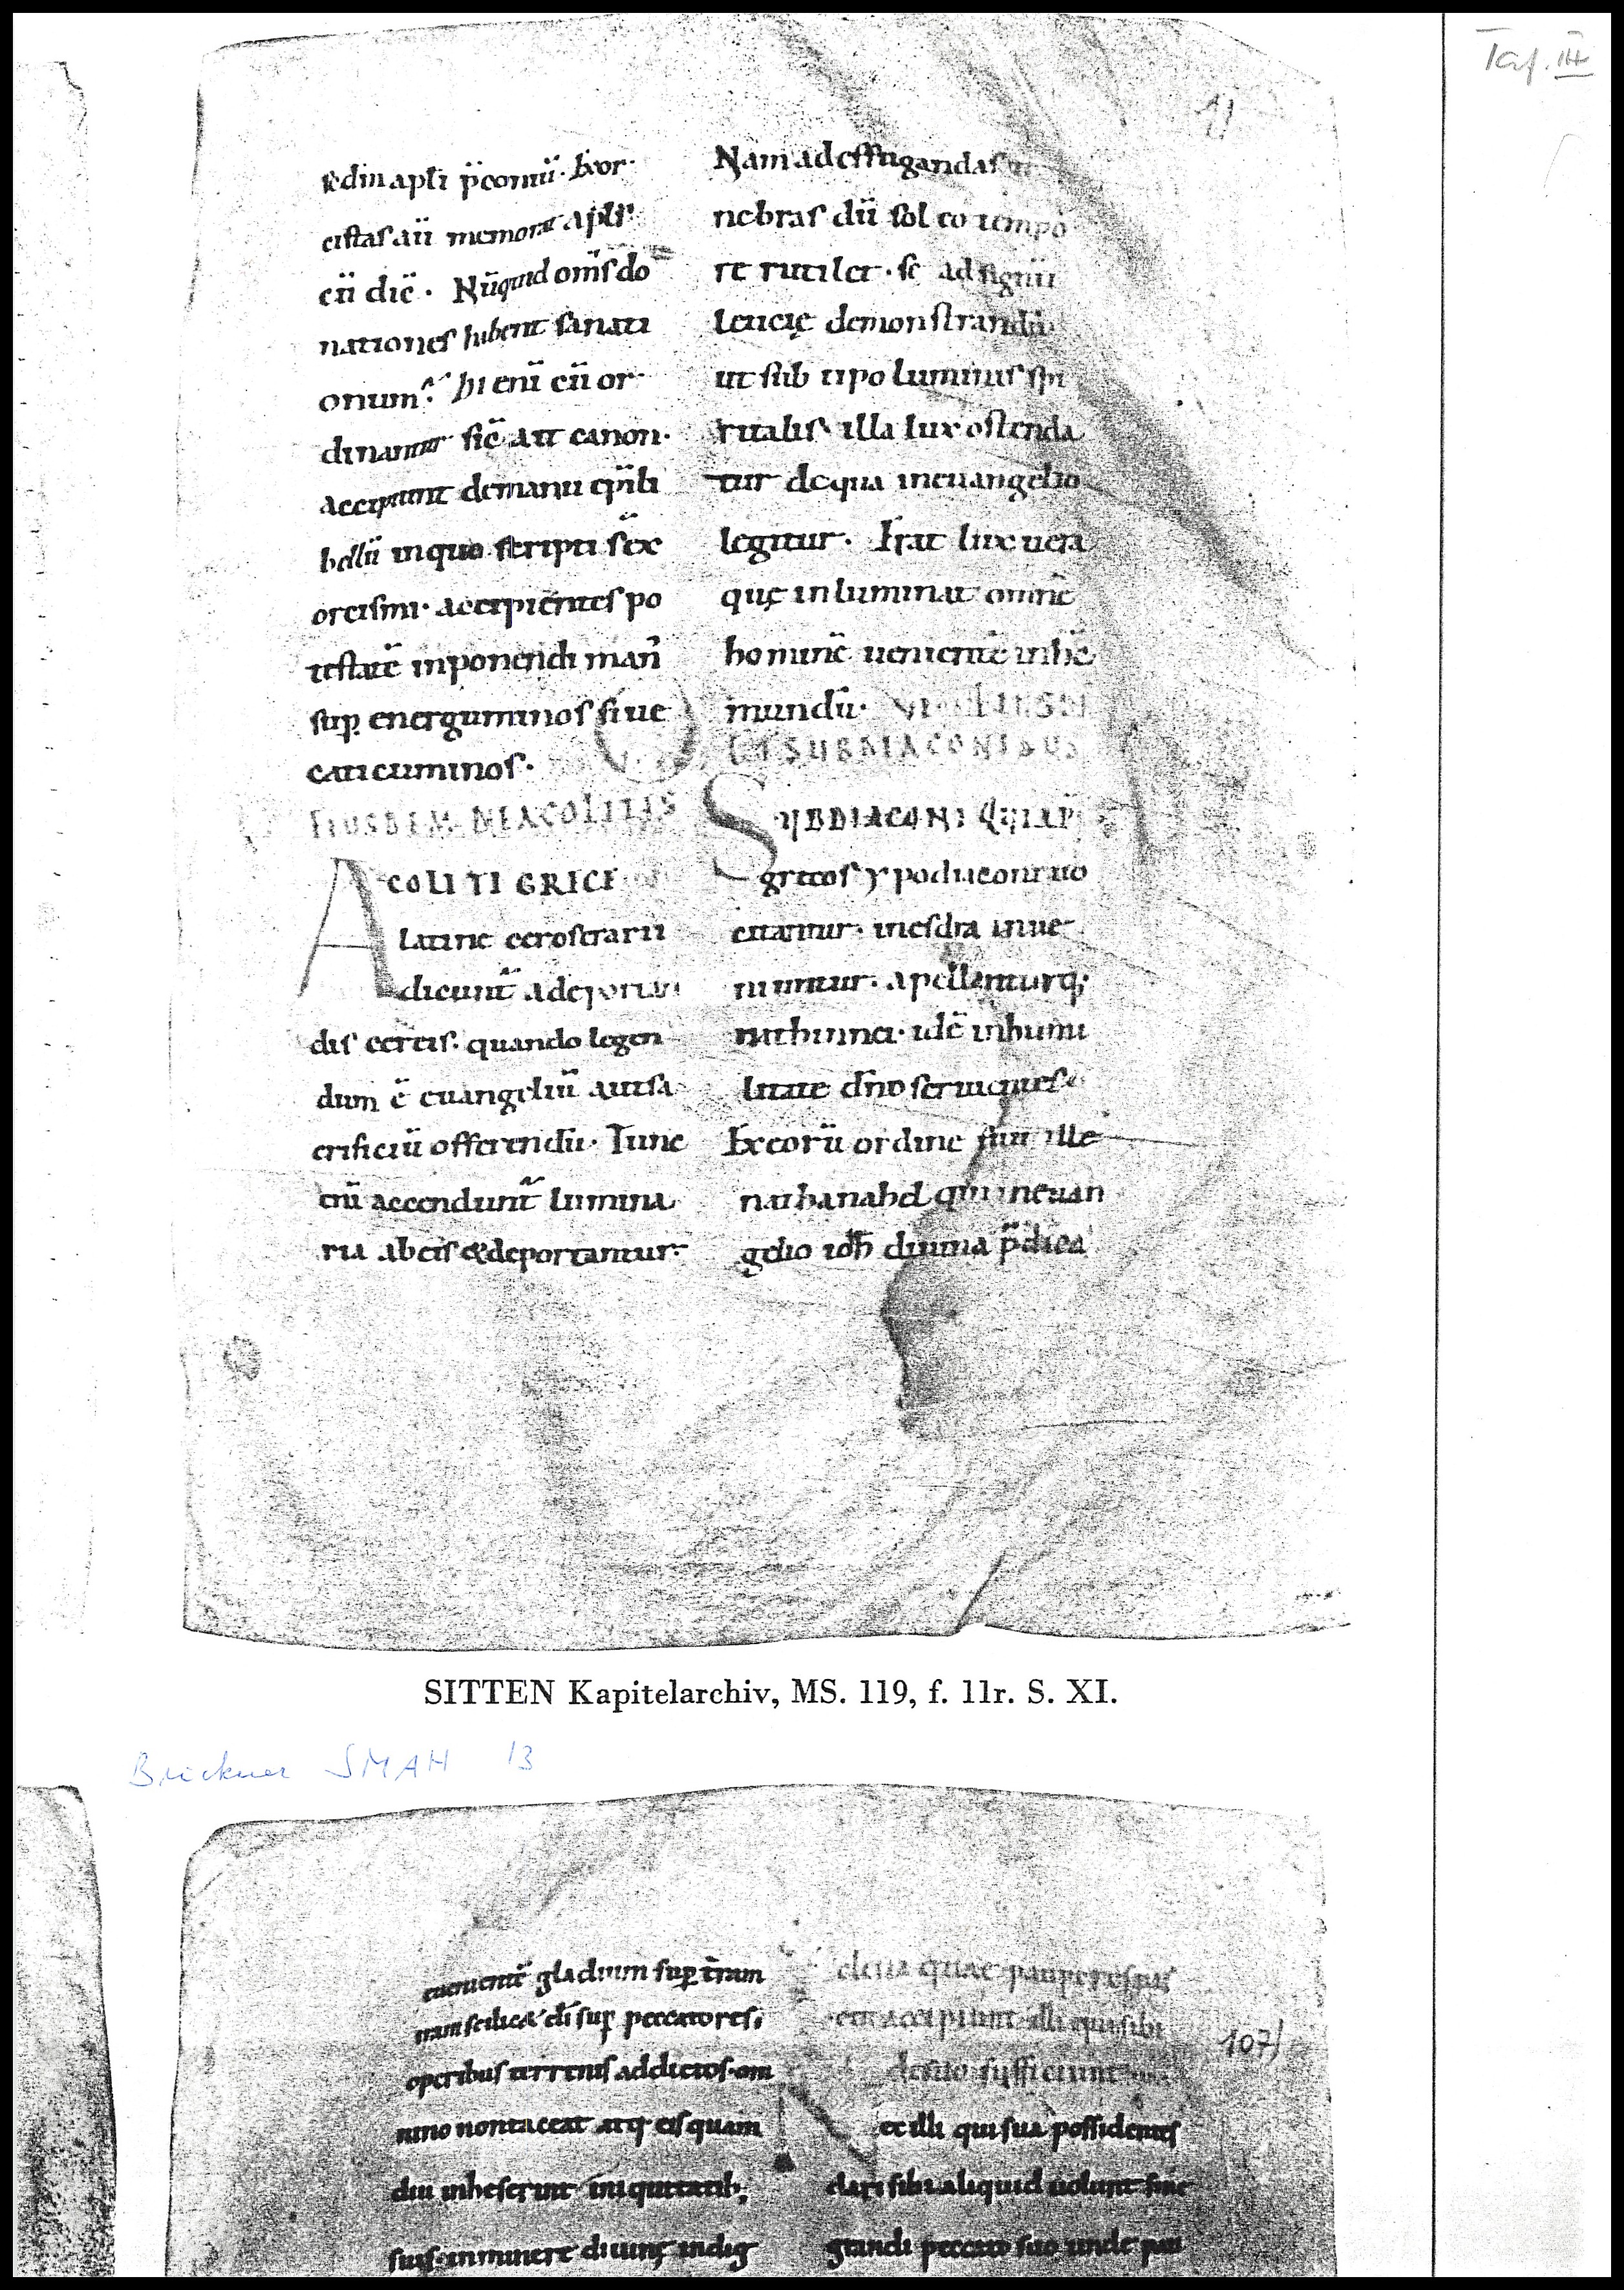 Taf. III
11
sẽdm apłi p̈coniū. Exor
cistas aū memorat apłs
cū dic̄. Nūquid om̄s do
nationes habent sanati
onum? hi enī cū or
dinantur sic̄ ait canon.
accipiunt de manu ep̄i li
bellū in quo scripti s̄ ex
orcismi. accipientes po
testatē inponendi man̄
sup̱ energuminos siue
caticuminos.
EIUSDEM DE ACOLITIS
ACOLITI GRECE
latine ceroferarii
dicunt̃ a deportan
dis cereis. quando legen
dum ē euangeliū aut sa
crificiū offerendū. Tunc
enī accendunt̃ lumina
ria ab eis & deportantur.
Nam ad effugandas te
nebras dū sol eo tempo
re rutilet. sȩ ad signū
leticię demonstrandū
ut sub tipo luminis spi
ritalis illa lux ostenda
tur de qua in euangelio
legitur. Erat lux uera
quę inluminat omnē
hominē uenientē in hc̄
mundū.
SUBDIACONIBUS
SUBDIACONI QUI AP̄
grecos ypodiaconi uo
cantur. in esdra inue
niuntur. apellanturq;
nathinnei. idē in humi
litate dn̄o seruientes
Ex eorū ordine fuit ille
nathanahel qui in euan
gelio ioh̄ diuina p̄dica
SITTEN Kapitelarchiv, MS. 119, f. 11r. S. XI.
Bruckner SMAH 13
107)
euenient̃ gladium sup̱ tr̄am
iram scilicet dī sup̱ peccatores.
operibus terrenis addictos. om
nino non taceat atq; eis quam
diu inheserint iniquitatib;
suis. inminere diuinę indig
elena quae pauperes
accipiunt illi qui sibi
de suo sufficiunt
et illi qui sua possidentes
dari sibi aliquid uolunt sine
grandi peccato suo unde pau